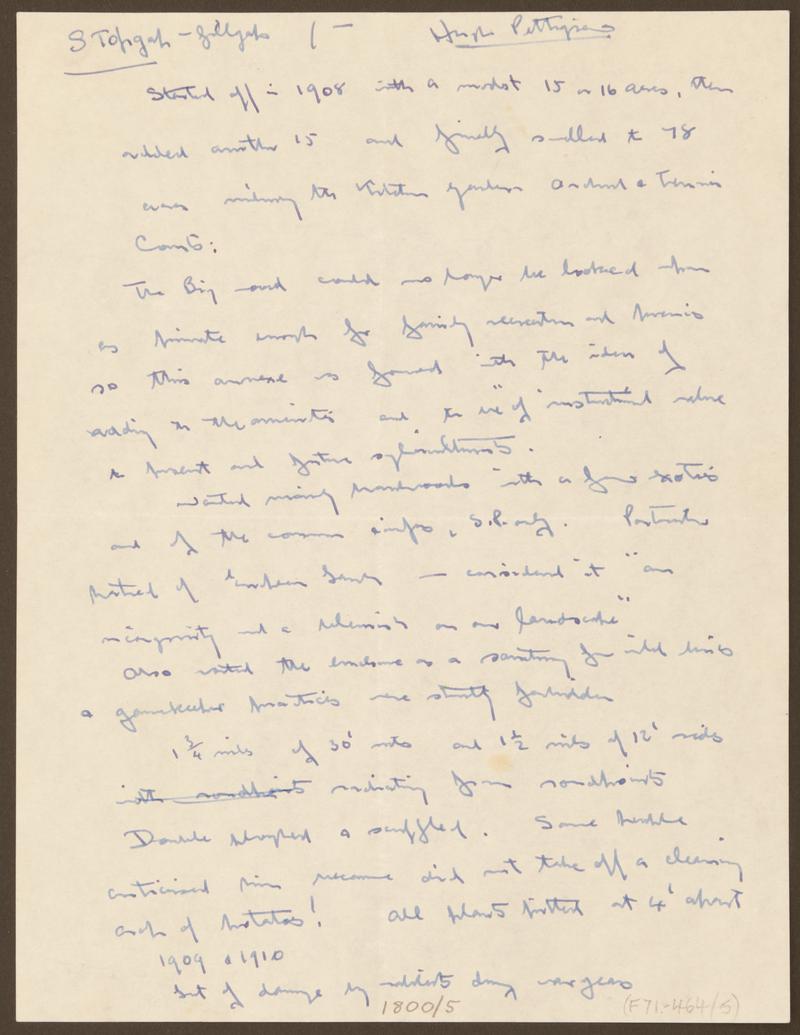 Stopgap - Gillgab 1 - Hugh Pettigrew
Started off in 1908 with a modest 15 or 16 acres, then
added another 15 and finally swelled to 78
acres including the Kitchen garden Orchard & Tennis
Courts:
The Big wood could no longer be looked upon
as private enough for family recreation and picnics
so this annexe was formed with the idea of
adding to the amenities and to be "of instructional value
to present and future sylviculturists.
wanted mainly hardwoods with a few exotics
and of the common conifers, S.P. only. Particular
hatred of European Larch — considered it "an
incongruity and a blemish on our landscape"
Also wanted the enclosure as a sanctuary for wild birds
& gamekeeper practices were strictly forbidden
1 3/4 miles of 30' and 1 1/2 miles of 12' rides
radiating from roadpoints
Double ploughed & scuffled. Some people
criticised him because did not take off a cleaning
crop of potatoes! All plants pitted at 4' apart
1909 & 1910
lot of damage by rabbits during war years
1800/5 (F71.-464/5)